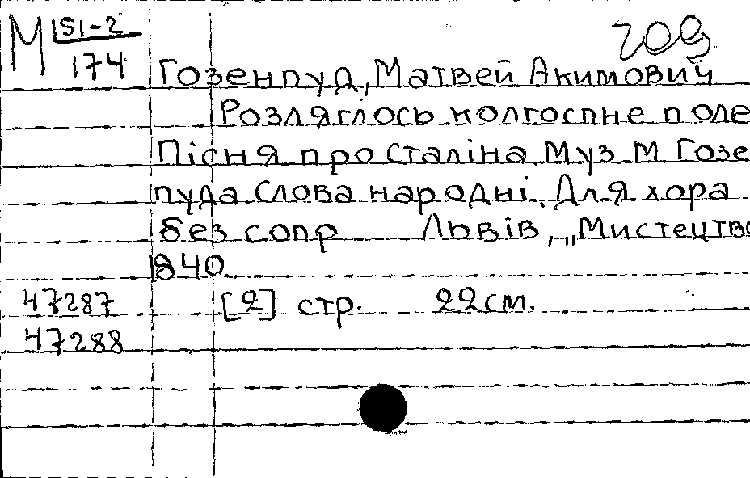 М S1-2
174
209
Гозенпуд, Матвей Акимович
Розляглось колгоспне поле
Пісня про Сталіна. Муз М Гозе
пуда Слова народні. Для хора
без сопр Львів, „Мистецтво
840
47287 [2] стр. 22 см.
47288